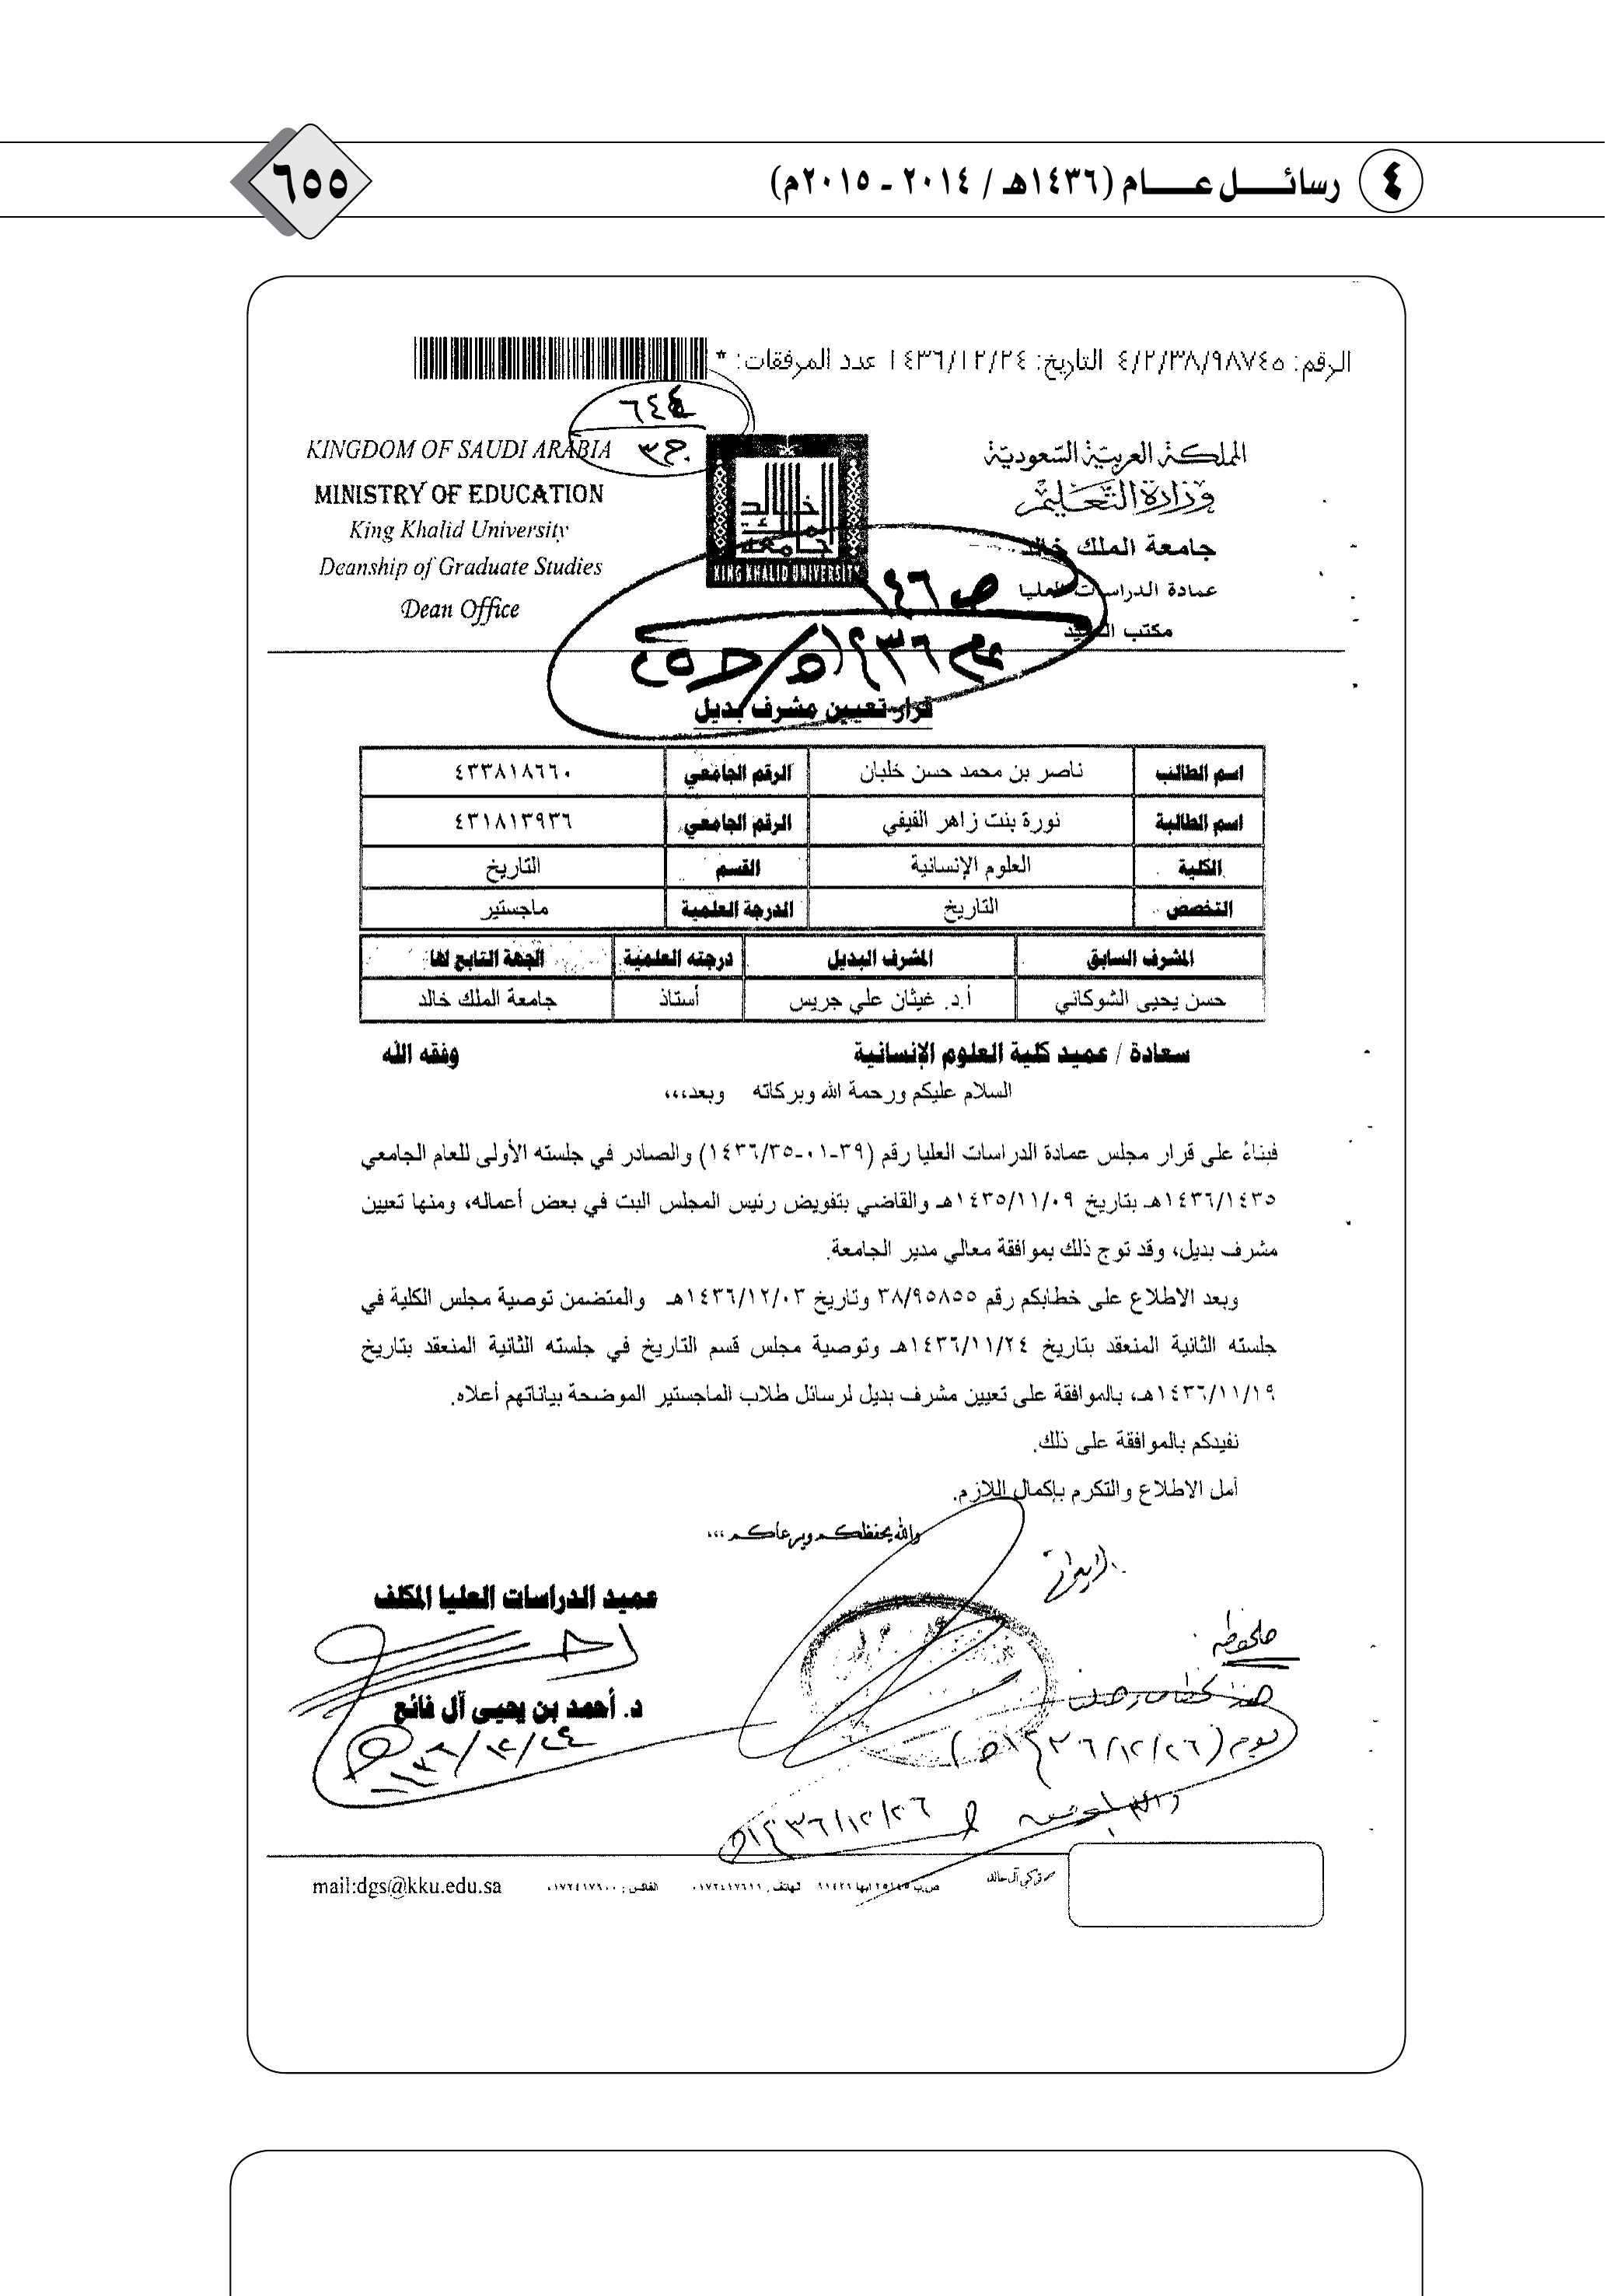 ٤ رسائل عام (١٤٣٦هـ / ٢٠١٤ - ٢٠١٥م)
٦٥٥
الرقم: ٤/٢/٣٨/٩٨٧٤٥ التاريخ: ١٤٣٦/١٢/٢٤ عدد المرفقات: *
٦٤٤
ج٣
المملكة العربية السعودية
وزارة التعليم
جامعة الملك خالد
عمادة الدراسات العليا
مكتب العميد
KING KHALID UNIVERSITY
KINGDOM OF SAUDI ARABIA
MINISTRY OF EDUCATION
King Khalid University
Deanship of Graduate Studies
Dean Office
ص ١٤٦
قرار تعيين مشرف بديل
اسم الطالب ناصر بن محمد حسن خلبان الرقم الجامعي ٤٣٣٨١٨٦٦٠
اسم الطالبة نورة بنت زاهر الفيفي الرقم الجامعي ٤٣١٨١٣٩٣٦
الكلية العلوم الإنسانية القسم التاريخ
التخصص التاريخ الدرجة العلمية ماجستير
المشرف السابق المشرف البديل درجته العلمية الجهة التابع لها
حسن يحيى الشوكاني أ.د. غيثان علي جريس أستاذ جامعة الملك خالد
سعادة / عميد كلية العلوم الإنسانية وفقه الله
السلام عليكم ورحمة الله وبركاته وبعد،،،
فبناءً على قرار مجلس عمادة الدراسات العليا رقم (٣٩-٠١-١٤٣٦/٣٥) والصادر في جلسته الأولى للعام الجامعي
١٤٣٦/١٤٣٥هـ بتاريخ ١٤٣٥/١١/٠٩هـ والقاضي بتفويض رئيس المجلس البت في بعض أعماله، ومنها تعيين
مشرف بديل، وقد توج ذلك بموافقة معالي مدير الجامعة.
وبعد الاطلاع على خطابكم رقم ٣٨/٩٥٨٥٥ وتاريخ ١٤٣٦/١٢/٠٣هـ والمتضمن توصية مجلس الكلية في
جلسته الثانية المنعقد بتاريخ ١٤٣٦/١١/٢٤هـ وتوصية مجلس قسم التاريخ في جلسته الثانية المنعقد بتاريخ
١٤٣٦/١١/١٩هـ، بالموافقة على تعيين مشرف بديل لرسائل طلاب الماجستير الموضحة بياناتهم أعلاه.
نفيدكم بالموافقة على ذلك.
آمل الاطلاع والتكرم بإكمال اللازم.
والله يحفظكم ويرعاكم،،،
عميد الدراسات العليا المكلف
د. أحمد بن يحيى آل فائع
ملحوظة
يوم (١٤٣٦/١٢/٢٦هـ)
١٤٣٦/١٢/٢٦هـ
mail:dgs@kku.edu.sa